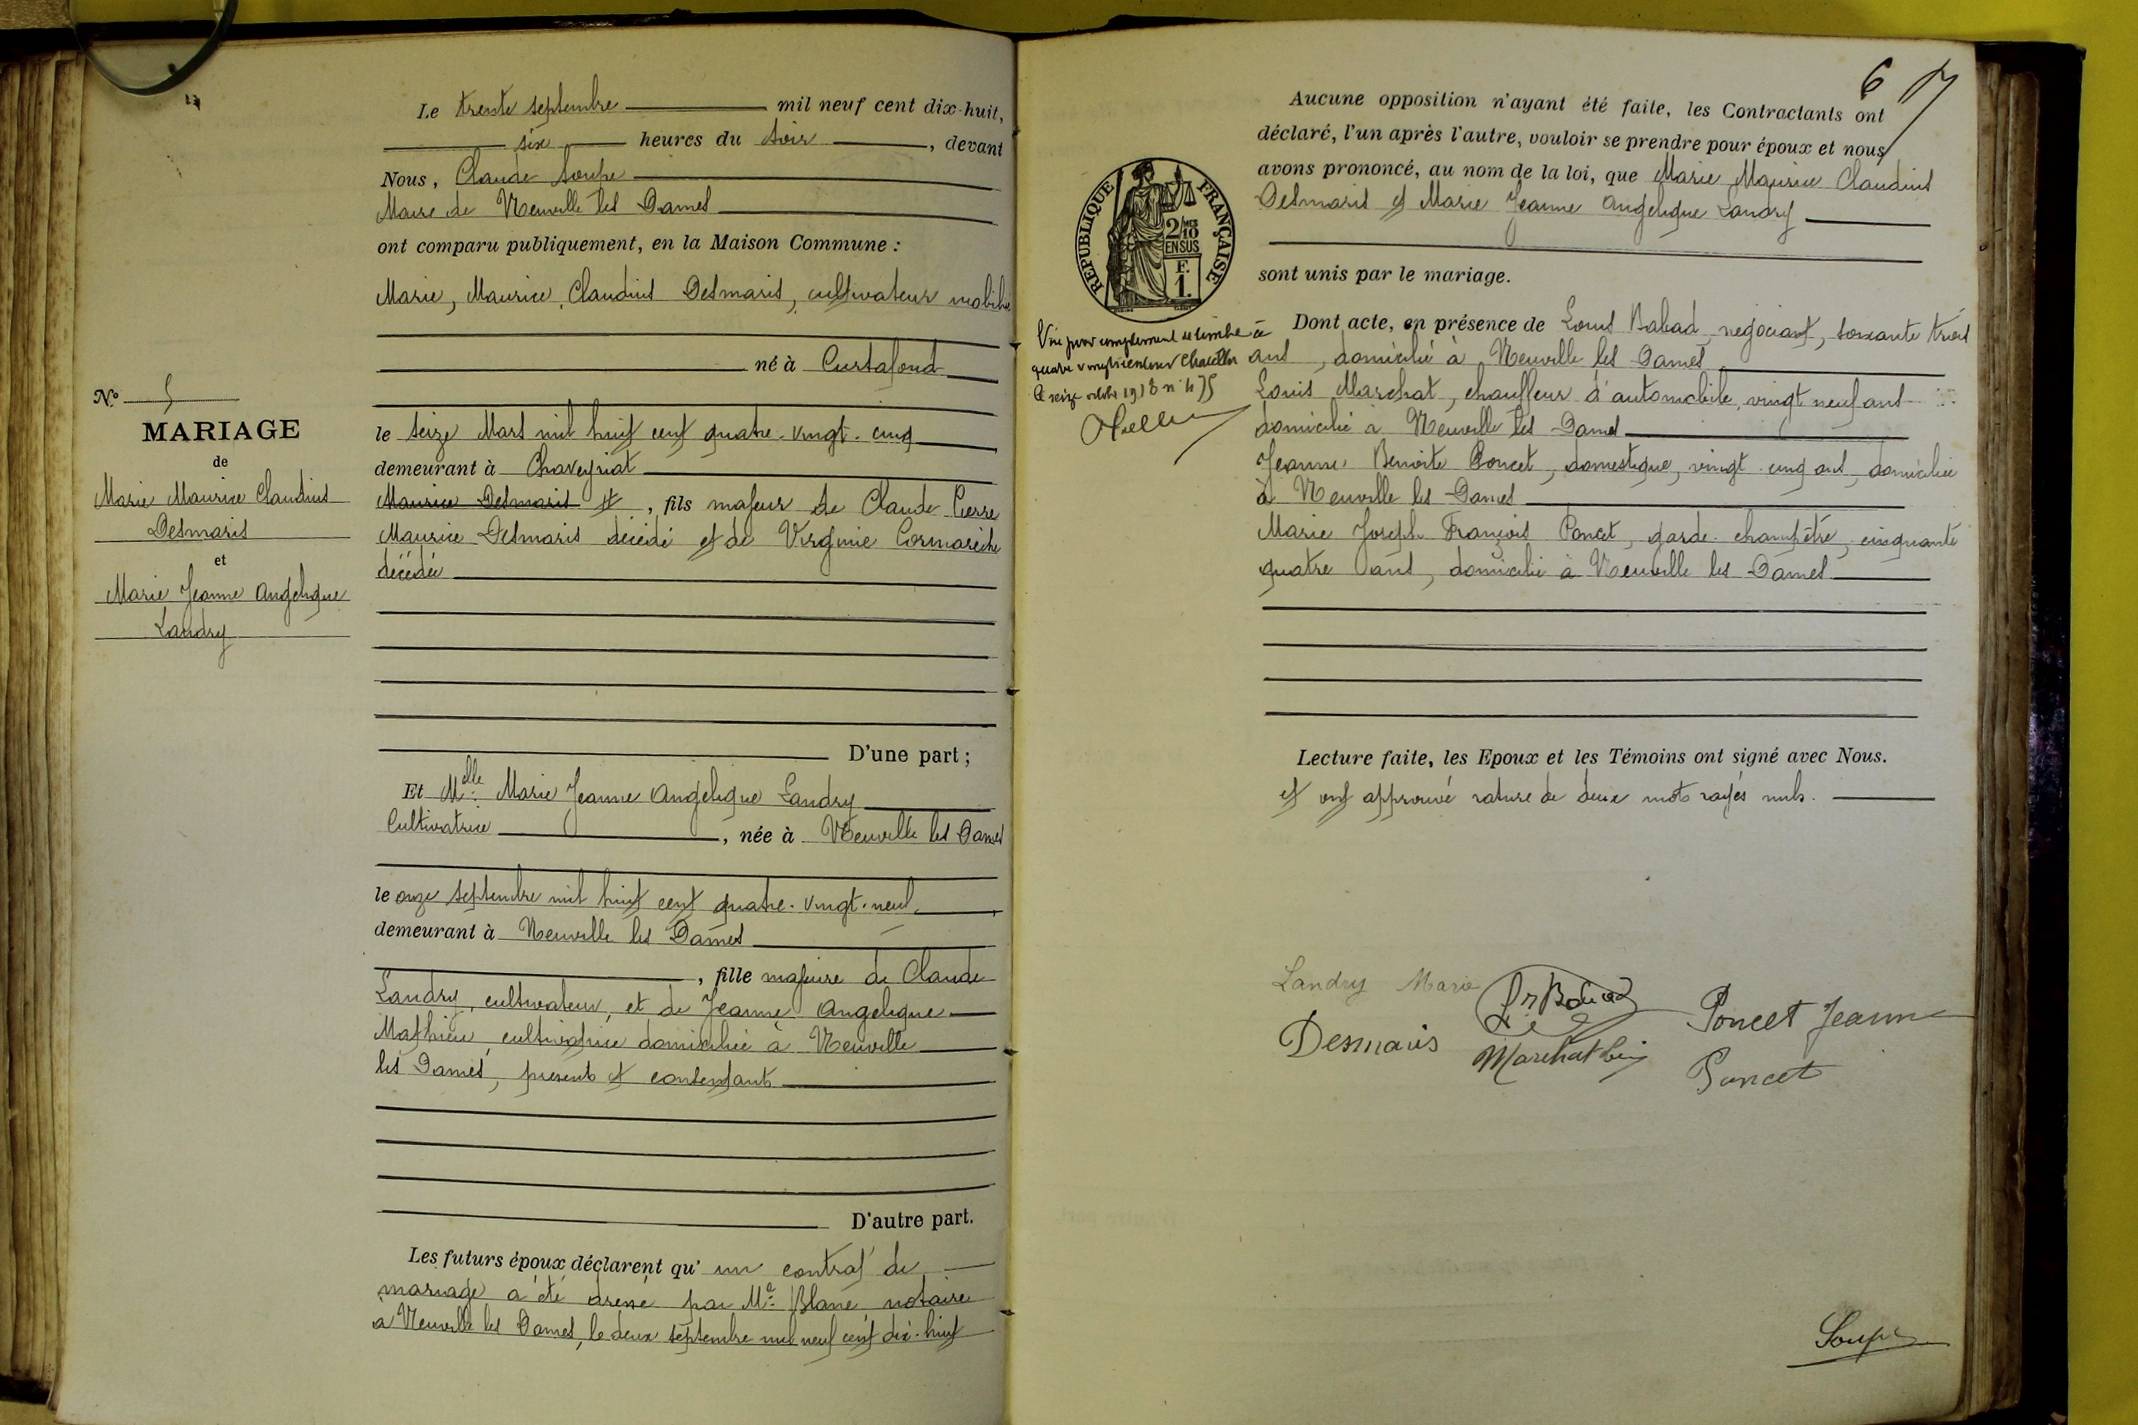 Le trente septembre mil neuf cent dix-huit,
six heures du soir, devant
Nous, Claude Soupe
Maire de Neuville les Dames
ont comparu publiquement, en la Maison Commune :
Marie, Maurice, Claudius Desmaris, cultivateur mobilisé
né à Curtafond
le seize Mars mil huit cent quatre-vingt-cinq
demeurant à Chaveyriat
Maurice Desmaris et, fils majeur de Claude Pierre
Maurice Desmaris décédé et de Virginie Cormarèche
décédée
D'une part ;
Et Melle Marie Jeanne Angelique Landry
Cultivatrice, née à Neuville les Dames
le onze septembre mil huit cent quatre-vingt-neuf
demeurant à Neuville les Dames
, fille majeure de Claude
Landry, cultivateur, et de Jeanne Angelique
Mathieu, cultivatrice domiciliée à Neuville
les Dames, présents et contentants
D'autre part.
Les futurs époux déclarent qu' un contrat de
mariage a été dressé par Me Blanc notaire
a Neuville les Dames, le deux septembre mil neuf cent dix-huit
N° 5
MARIAGE
de
Marie Maurice Claudius
Desmaris
et
Marie Jeanne Angelique
Landry
6
Aucune opposition n'ayant été faite, les Contractants ont
déclaré, l'un après l'autre, vouloir se prendre pour époux et nous
avons prononcé, au nom de la loi, que Marie Maurice Claudius
Desmaris et Marie Jeanne Angelique Landry
sont unis par le mariage.
Dont acte, en présence de Louis Babad, négociant, soixante trois
ans, domicilié à Neuville les Dames
Louis Marchat, chauffeur d'automobile, vingt neuf ans
domicilié à Neuville les Dames
Jeanne Benoite Poncet, domestique, vingt cinq ans, domiciliée
à Neuville les Dames
Marie Joseph François Poncet, garde-champêtre, cinquante
quatre ans, domicilié à Neuville les Dames
Lecture faite, les Epoux et les Témoins ont signé avec Nous.
et ont approuvé rature de deux mots rayés nuls.
RÉPUBLIQUE FRANÇAISE
2/10
EN SUS
F.
1.
Vu pour complement de timbre à
quatre vingt centimes Chatillon
le seize octobre 1918 n° 475
Landry Marie
Babad
Poncet Jeanne
Desmaris
Marchat
Poncet
Soupe